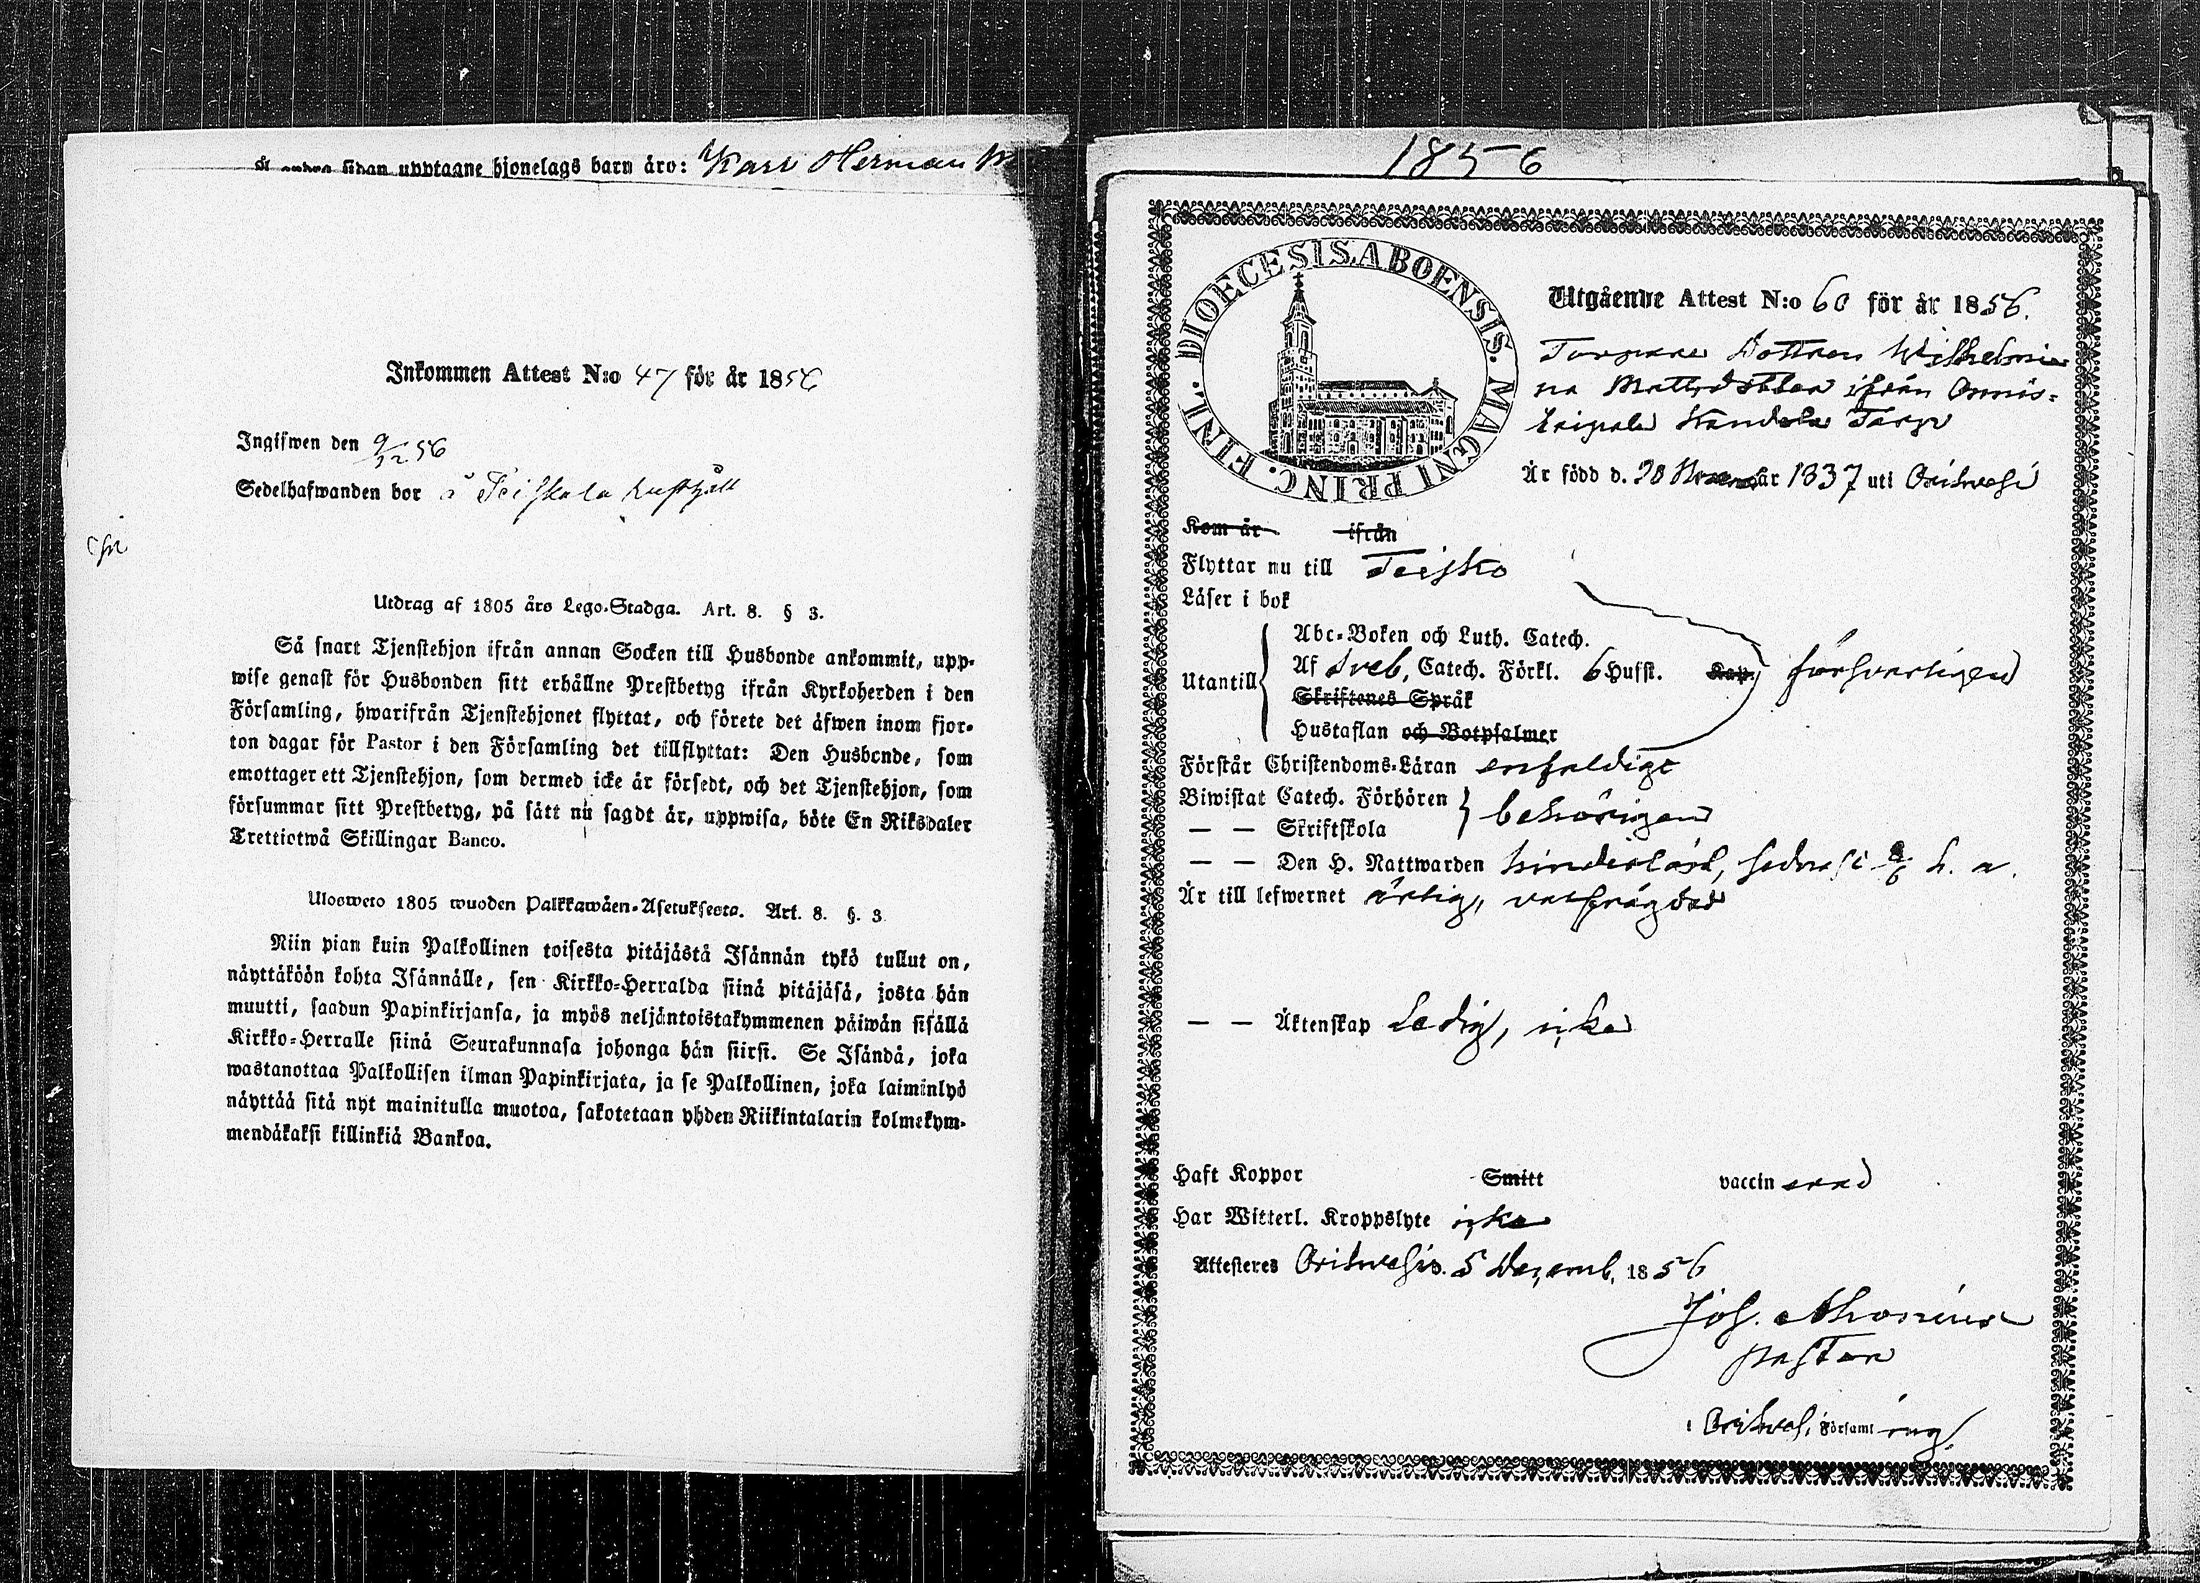 andra sidan upptagne hjonelags barn äro: Karl Herman
Inkommen Attest N:o 47 för år 1856
Ingifwen den 9/12 56
Sedelhafwanden bor å Teiskola
Utdrag af 1805 års Lego-Stadga. Art. 8. § 3.
Så snart Tjenstehjon ifrån annan Socken till Husbonde ankommit, upp-
wise genast för Husbonden sitt erhållne Prestbetyg ifrån Kyrkoherden i den
Församling, hwarifrån Tjenstehjonet flyttat, och förete det äfwen inom fjor-
ton dagar för Pastor i den Församling det tillflyttat: Den Husbonde, som
emottager ett Tjenstehjon, som dermed icke är försedt, och det Tjenstehjon, som
försummar sitt Prestbetyg, på sätt nu sagdt är, uppwisa, böte En Riksdaler
Trettiotwå Skillingar Banco.
Ulosweto 1805 wuoden Palkkawäen-Asetuksesta. Art. 8. §. 3
Niin pian kuin Palkollinen toisesta pitäjästä Isännän tykö tullut on,
näyttäköön kohta Isännälle, sen Kirkko-Herralda siinä pitäjäsä, josta hän
muutti, saadun Papinkirjansa, ja myös neljäntoistakymmenen päiwän sisällä
Kirkko-Herralle siinä Seurakunnasa johonga hän siirsi. Se Isändä, joka
wastanottaa Palkollisen ilman Papinkirjata, ja se Palkollinen, joka laiminlyö
näyttää sitä nyt mainitulla muotoa, sakotetaan yhden Riikintalarin kolmekym-
mendäkaksi killinkiä Bankoa.
1856
DIOECESIS. ABOENSIS. MAGNI PRINC. FINL.
Utgående Attest N:o 60 för år 1856.
Torpare Dottren Wilhelmi
na Mattsdotter ifrån Onnis-
Torp
Är född d. 28 år 1837 uti Orihvesi
Kom år ifrån
Flyttar nu till Teisko
Läser i bok
Utantill
Abc-Boken och Luth. Catech.
Af Sveb. Catech. Förkl. 6 Hufst. Kap. försvarligen
Skriftenes Språk
Hustaflan och Botpsalmer
Förstår Christendoms-Läran enfaldigt
Biwistat Catech. Förhören behörigen
— — Skriftskola
— — Den H. Nattwarden hinderlöst, sednast h. a.
Är till lefwernet ärlig, välfrägdad
— — Äktenskap Ledig, icke
Haft Koppor Smitt vaccinerad
Har Witterl. Kroppslyte icke
Attesteras Orihvesi. 5 Decemb. 1856
Joh. Ahonius
pastor
i Orihvesi Församling.